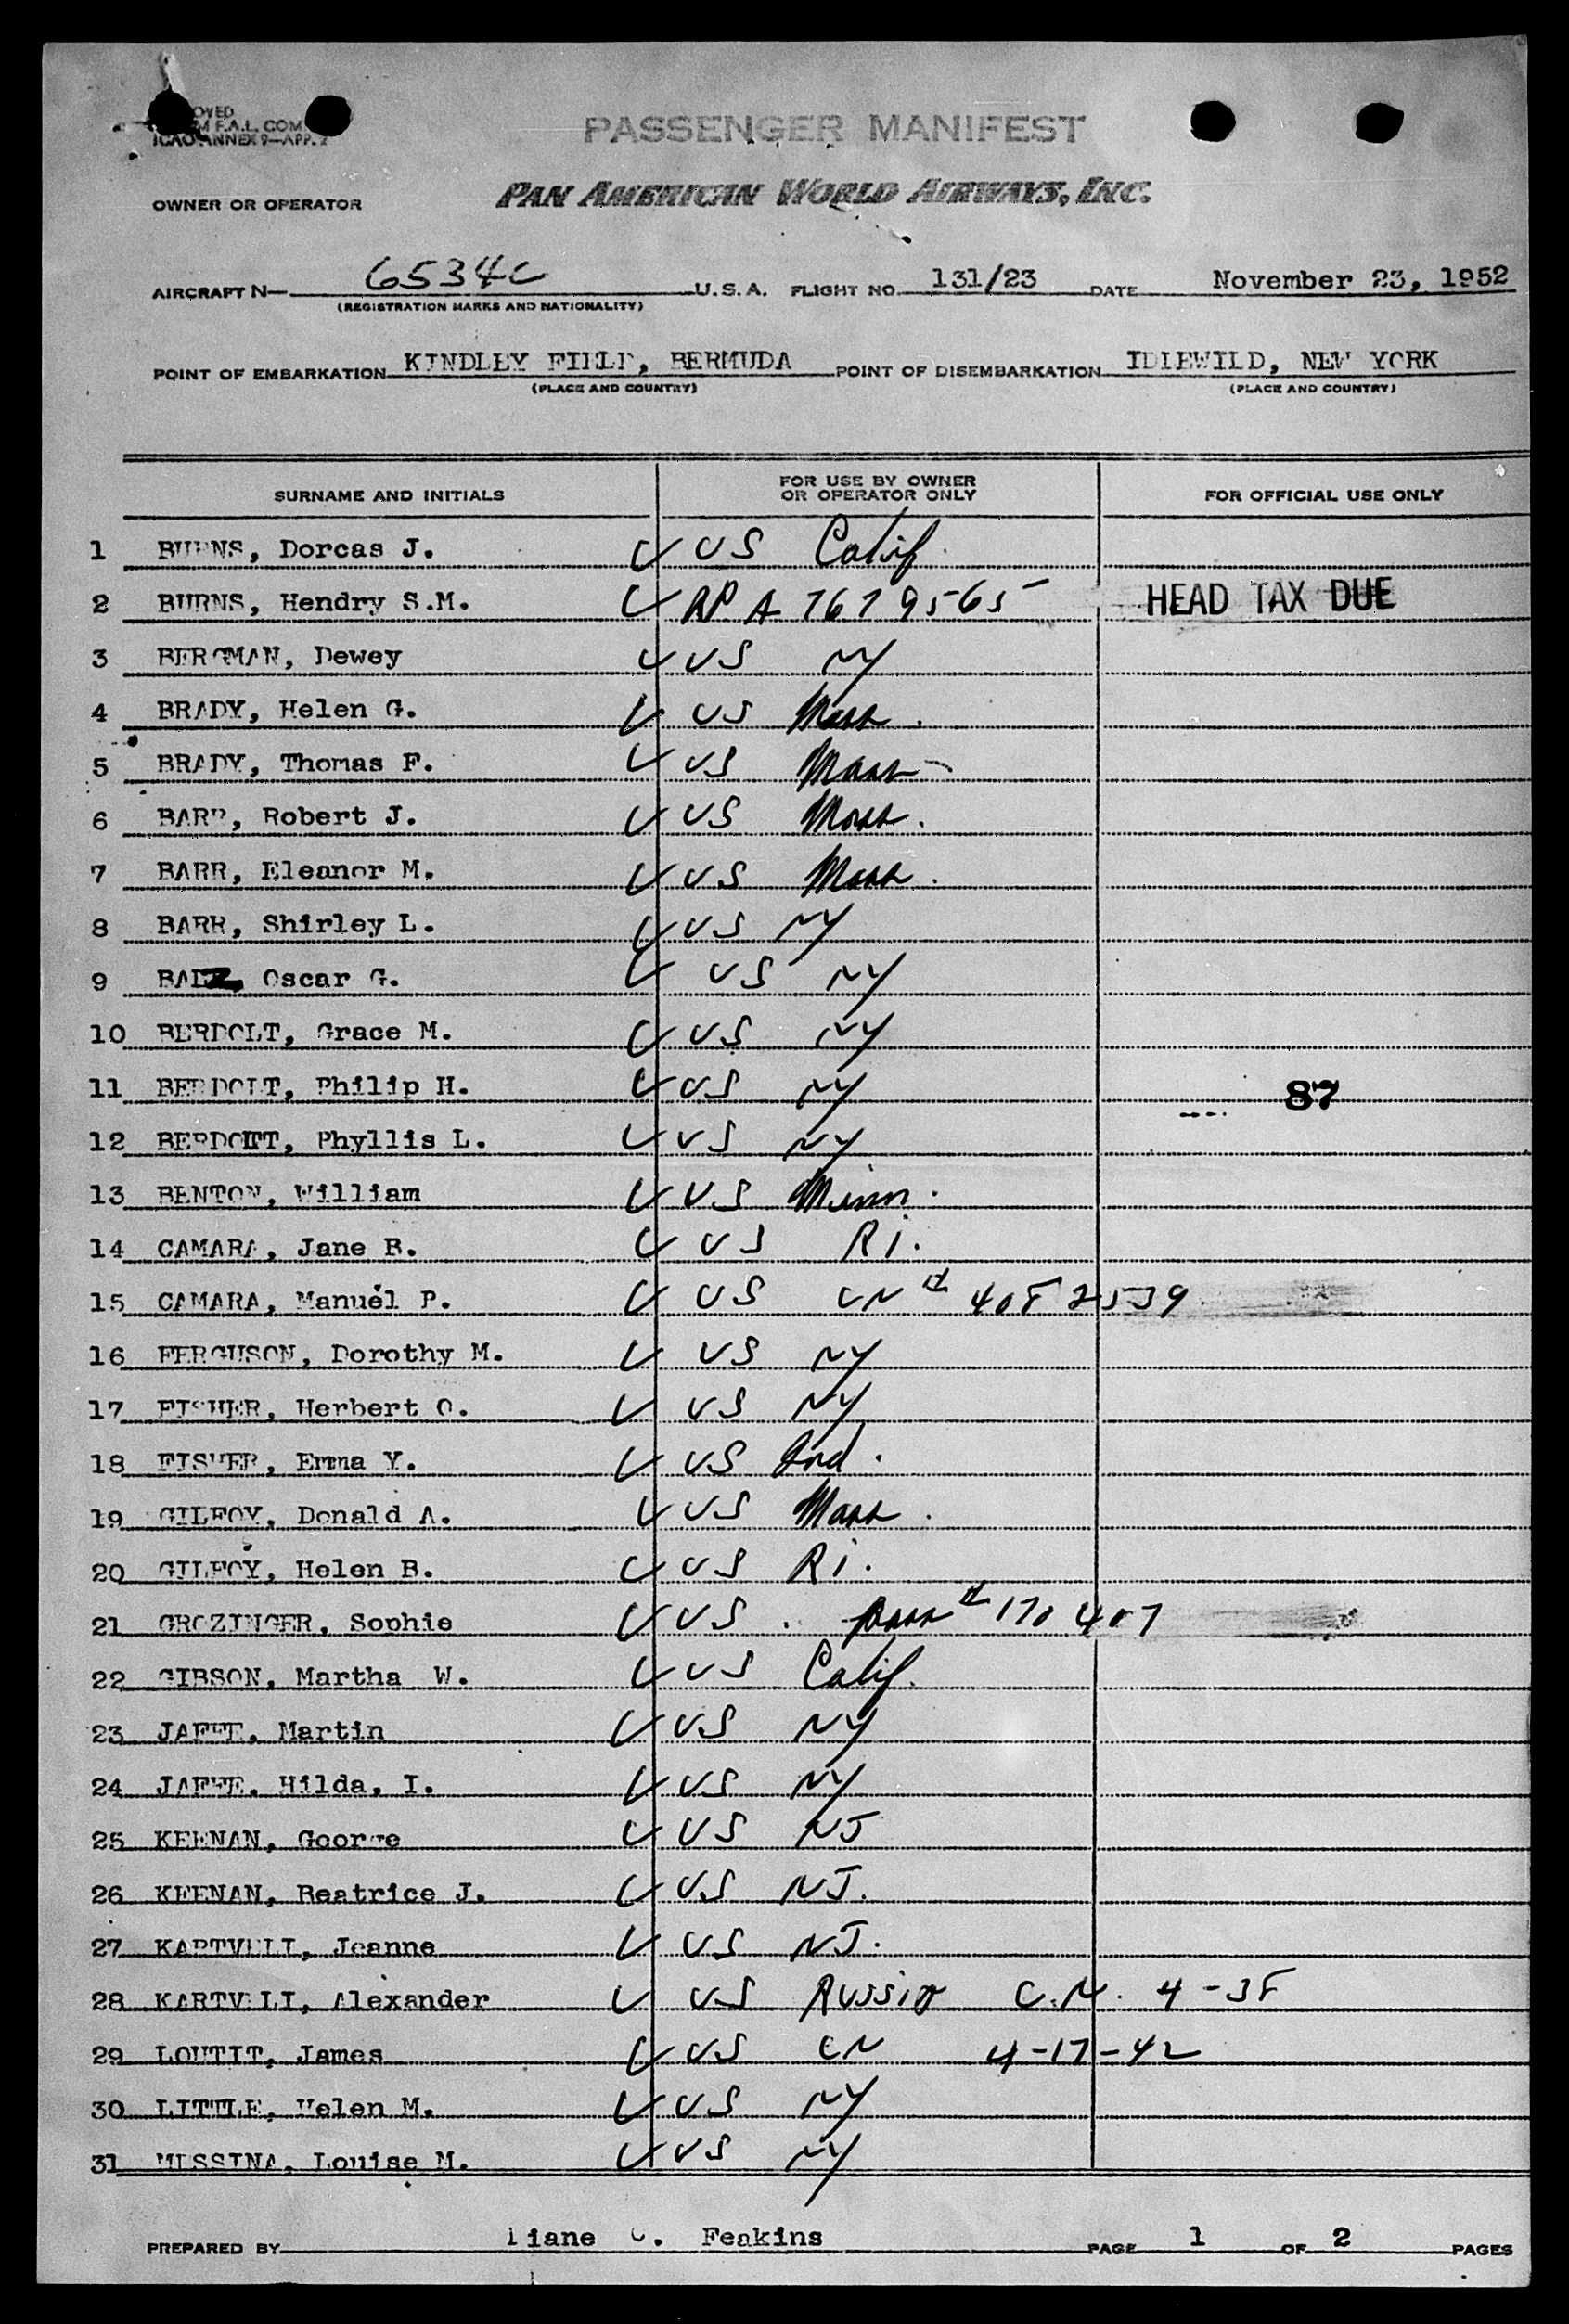 OVED
M F.A.L. COM
ICAO ANNEX 9—APP.
PASSENGER MANIFEST
OWNER OR OPERATOR PAN AMERICAN WORLD AIRWAYS, INC.
AIRCRAFT N— 6534C U.S.A. FLIGHT NO. 131/23 DATE November 23, 1952
(REGISTRATION MARKS AND NATIONALITY)
POINT OF EMBARKATION KINDLEY FIELD, BERMUDA POINT OF DISEMBARKATION IDLEWILD, NEW YORK
(PLACE AND COUNTRY) (PLACE AND COUNTRY)
SURNAME AND INITIALS FOR USE BY OWNER OR OPERATOR ONLY FOR OFFICIAL USE ONLY
1 BURNS, Dorcas J. US Calif.
2 BURNS, Hendry S.M. RP A 7679565 HEAD TAX DUE
3 BERGMAN, Dewey US NY
4 BRADY, Helen G. US Mass.
5 BRADY, Thomas F. US Mass
6 BARR, Robert J. US Mass.
7 BARR, Eleanor M. US Mass.
8 BARR, Shirley L. US NY
9 BALZ, Oscar G. US NY
10 BERDOLT, Grace M. US NY
11 BERDOLT, Philip H. US NY 87
12 BERDOLT, Phyllis L. US NY
13 BENTON, William US Minn.
14 CAMARA, Jane B. US RI.
15 CAMARA, Manuel P. US CN # 4082539
16 FERGUSON, Dorothy M. US NY
17 FISHER, Herbert O. US NY
18 FISHER, Emma Y. US Ind.
19 GILFOY, Donald A. US Mass.
20 GILFOY, Helen B. US RI.
21 GROZINGER, Sophie US. Pass # 170407
22 GIBSON, Martha W. US Calif.
23 JAFFE, Martin US NY
24 JAFFE, Hilda, I. US NY
25 KEENAN, George US NJ
26 KEENAN, Beatrice J. US NJ.
27 KARTVELI, Jeanne US NJ.
28 KARTVELI, Alexander US Russia C.N. 4-38
29 LOUTIT, James US CN 4-17-42
30 LITTLE, Helen M. US NY
31 MESSINA, Louise M. US NY
PREPARED BY Diane C. Feakins PAGE 1 OF 2 PAGES